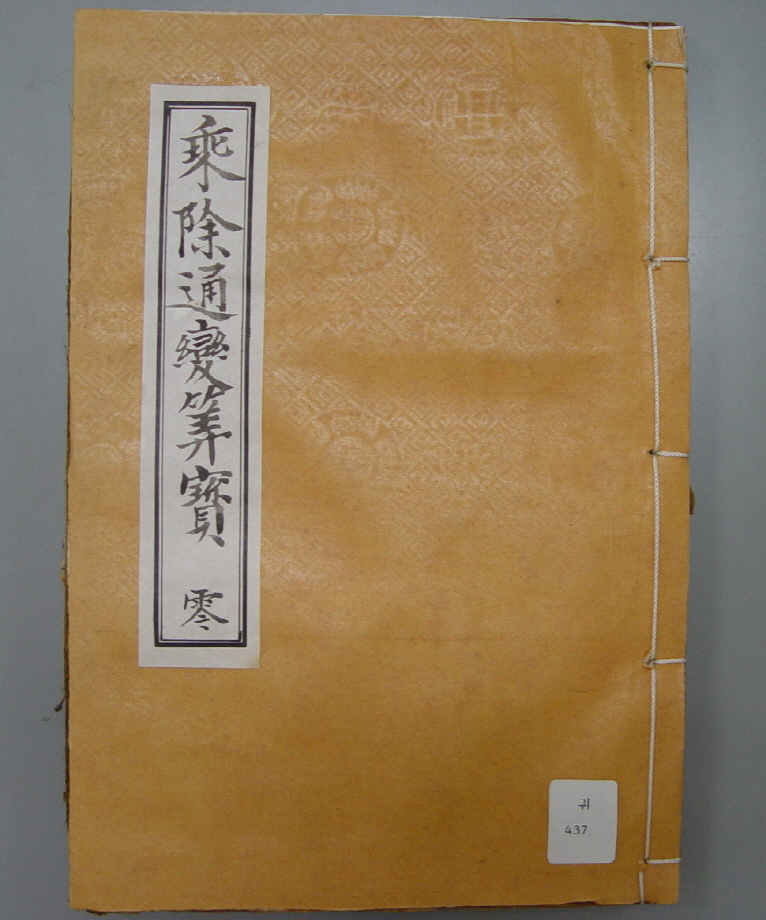 乘除通變筭寶 零
귀
437